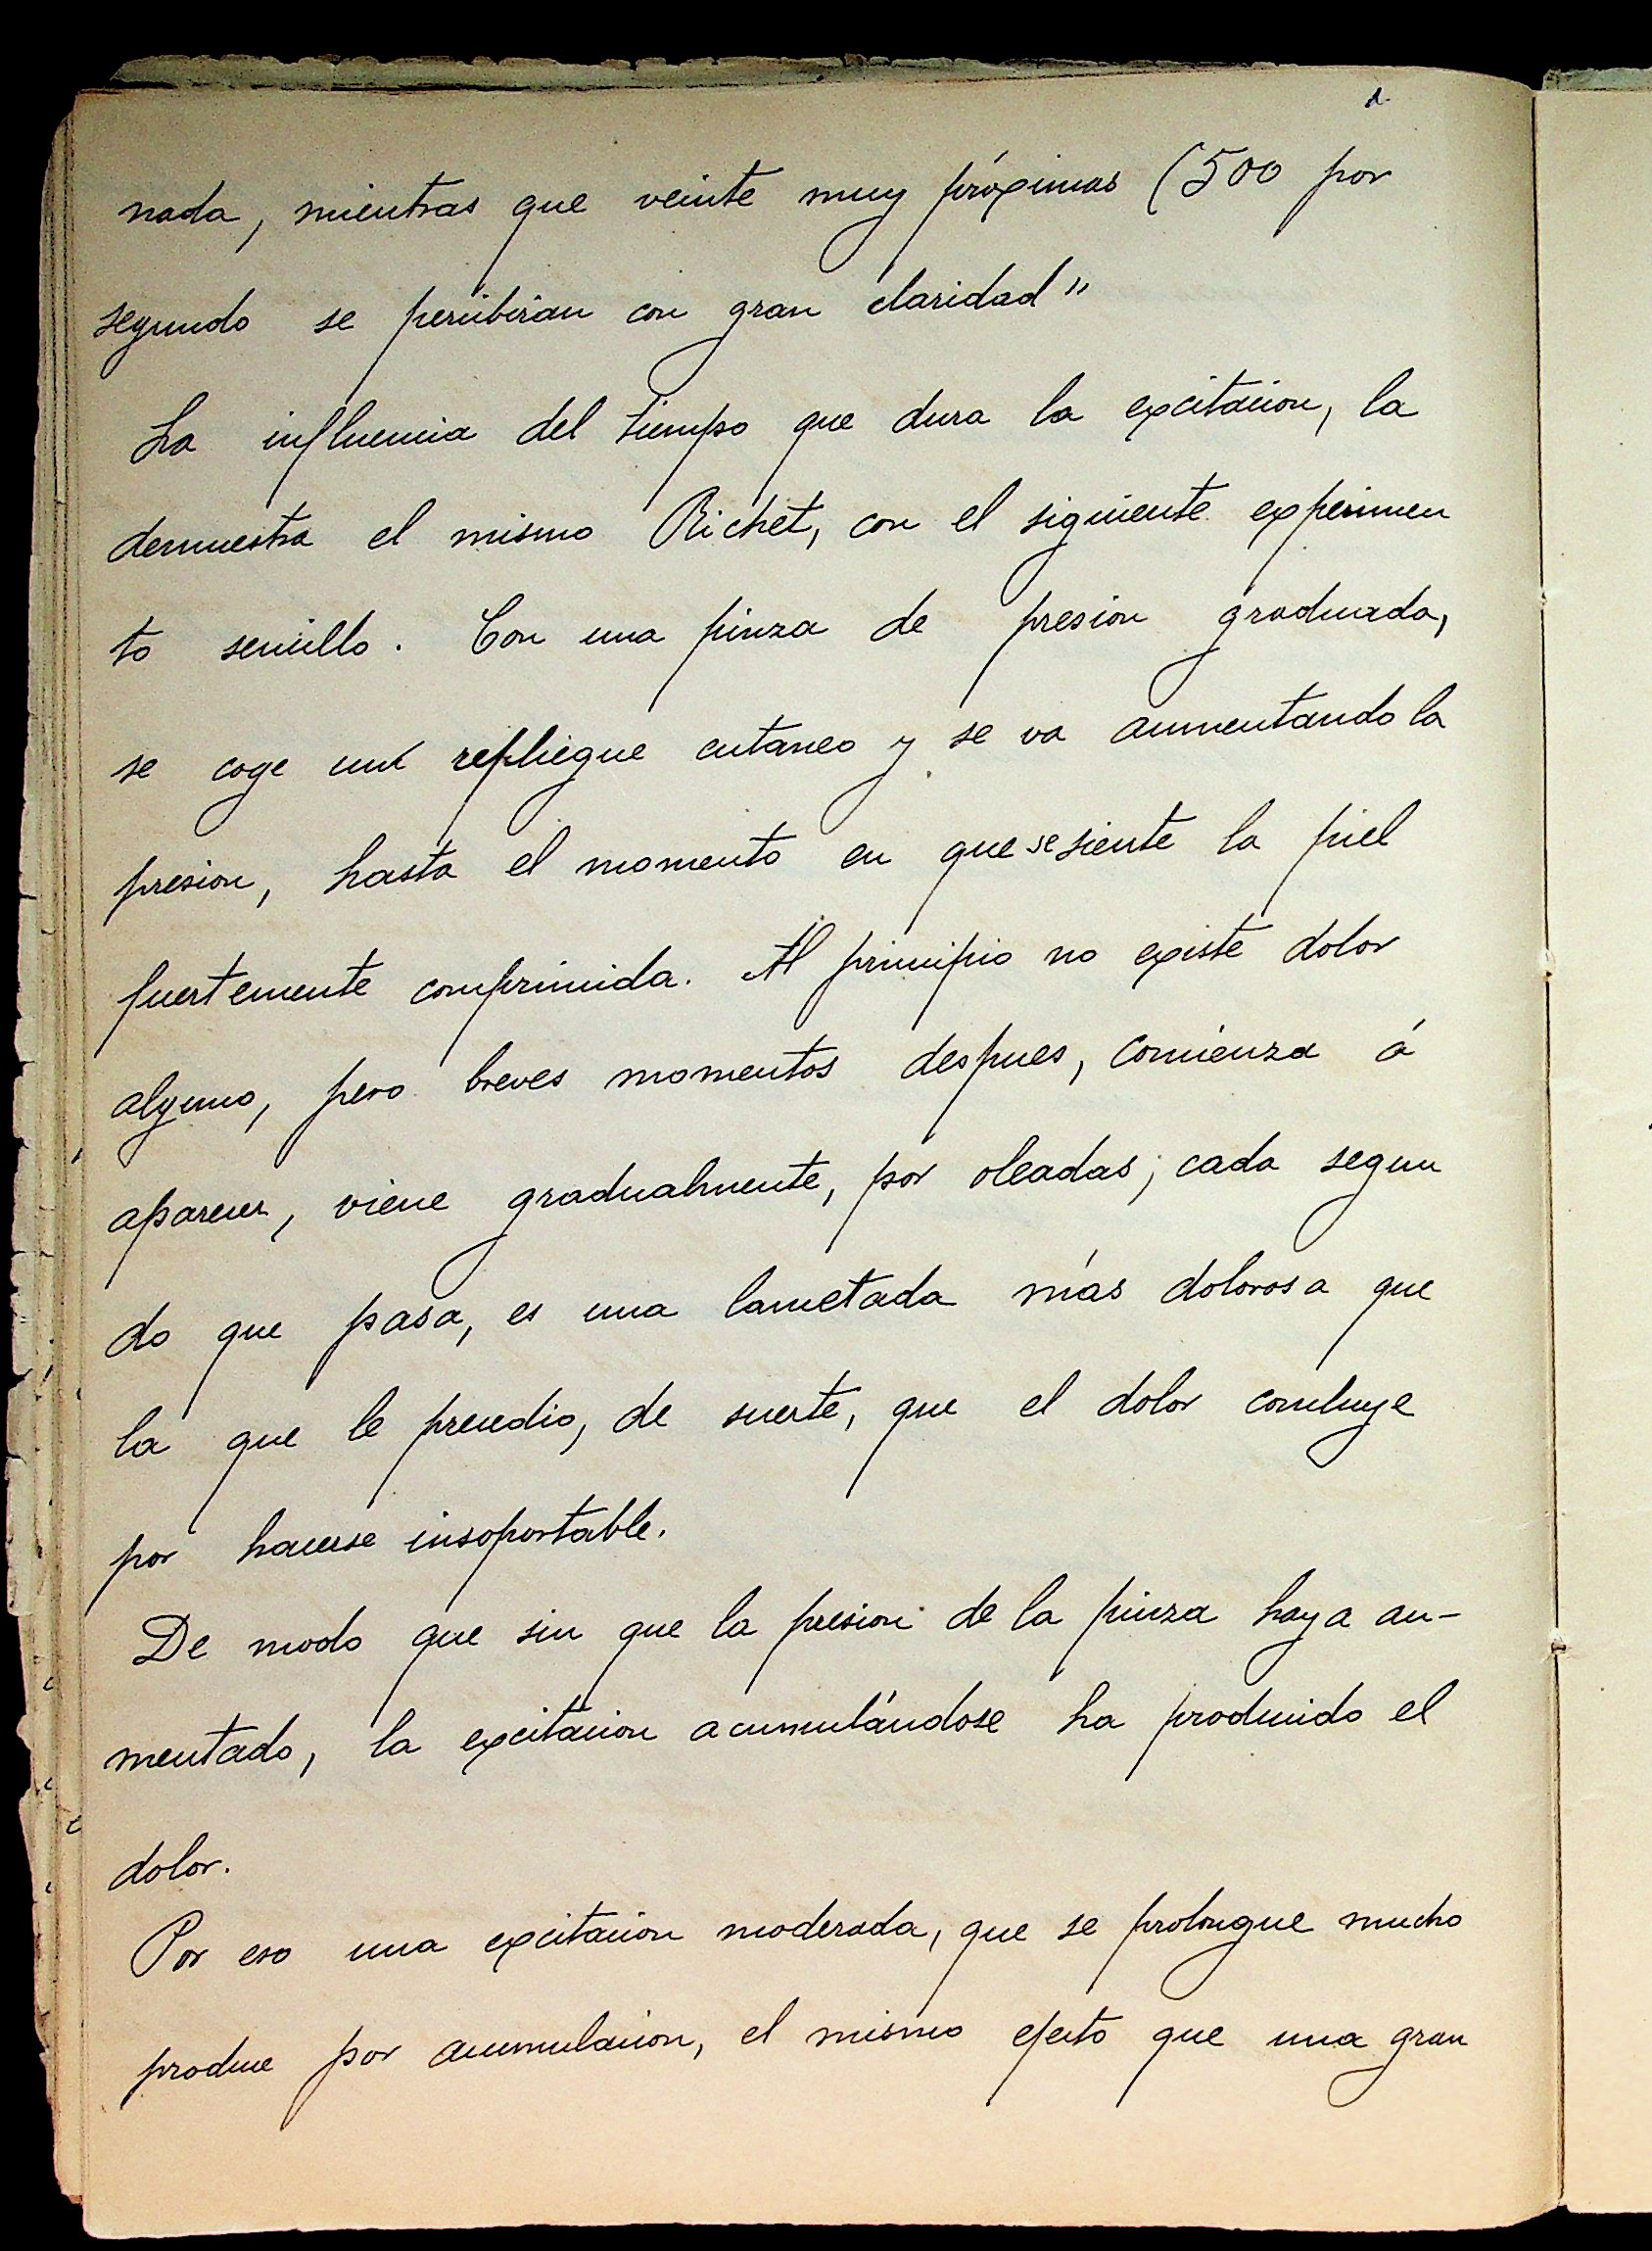 nada, mientras que veinte muy próximas (500 por
segundo se percibirian con gran claridad"
La influencia del tiempo que dura la excitacion, la
demuestra el mismo Richet, con el siguiente experimen
to sencillo. Con una pinza de presion graduada,
se coge un repliegue cutaneo y se va aumentando la
presion, hasta el momento en que se siente la piel
fuertemente comprimida. Al principio no existe dolor
alguno, pero breves momentos despues, comienza á
aparecer, viene gradualmente, por oleadas; cada segun
do que pasa, es una lancetada más dolorosa que
la que le precedio, de suerte, que el dolor concluye
por hacerse insoportable.
De modo que sin que la presion de la pinza haya au-
mentado, la excitacion acumulándose ha producido el
dolor.
Por eso una excitacion moderada, que se prolongue mucho
produce por acumulacion, el mismo efecto que una gran